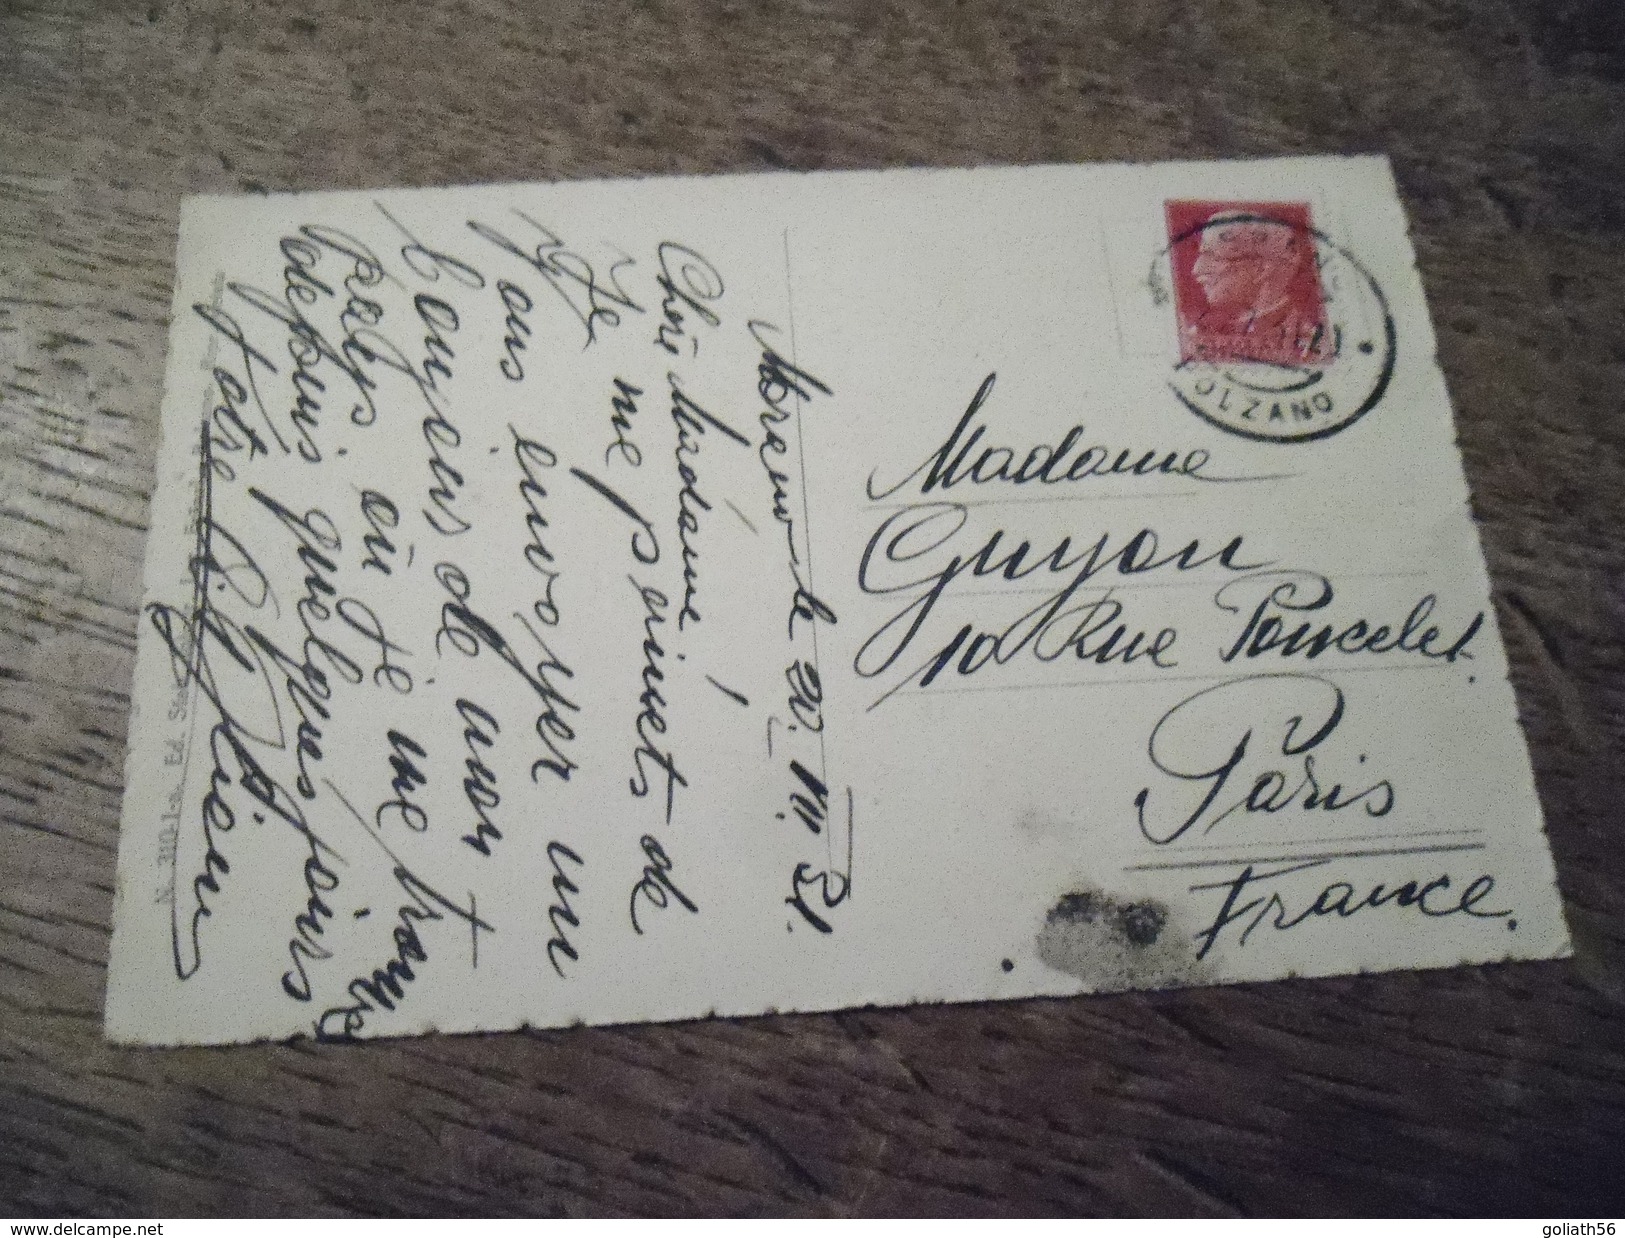 Merano le 20. VII. 32.
Chère Madame,
Je me permets de
vous envoyer un
bonjour de mon
pays où je me trouve
depuis quelques jours
Votre
N. 310-1-a. Ed.
Madame
Guyon
10 Rue Poncelet.
Paris
France.
BOLZANO
www.delcampe.net
goliath56